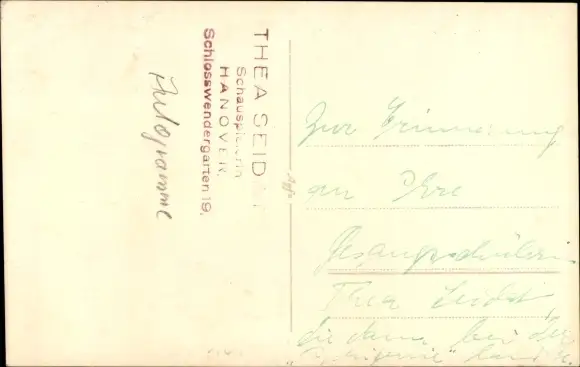 THEA SEID
Schauspielerin
HANOVER.
Schlosswendergarten 19.
Autogramme
Zur Erinnerung
an Ihre
Gesangsschülerin
Thea Seidat
die dann bei der